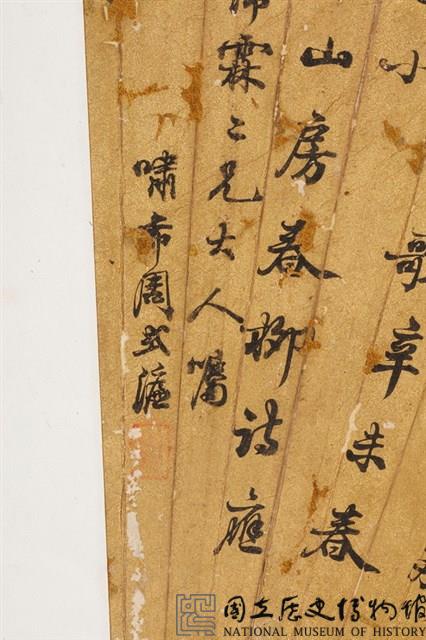 小哥辛未春
山房春柳詩應
霖二兄大人囑
嘯市周式濂
國立歷史博物館
NATIONAL MUSEUM OF HISTORY